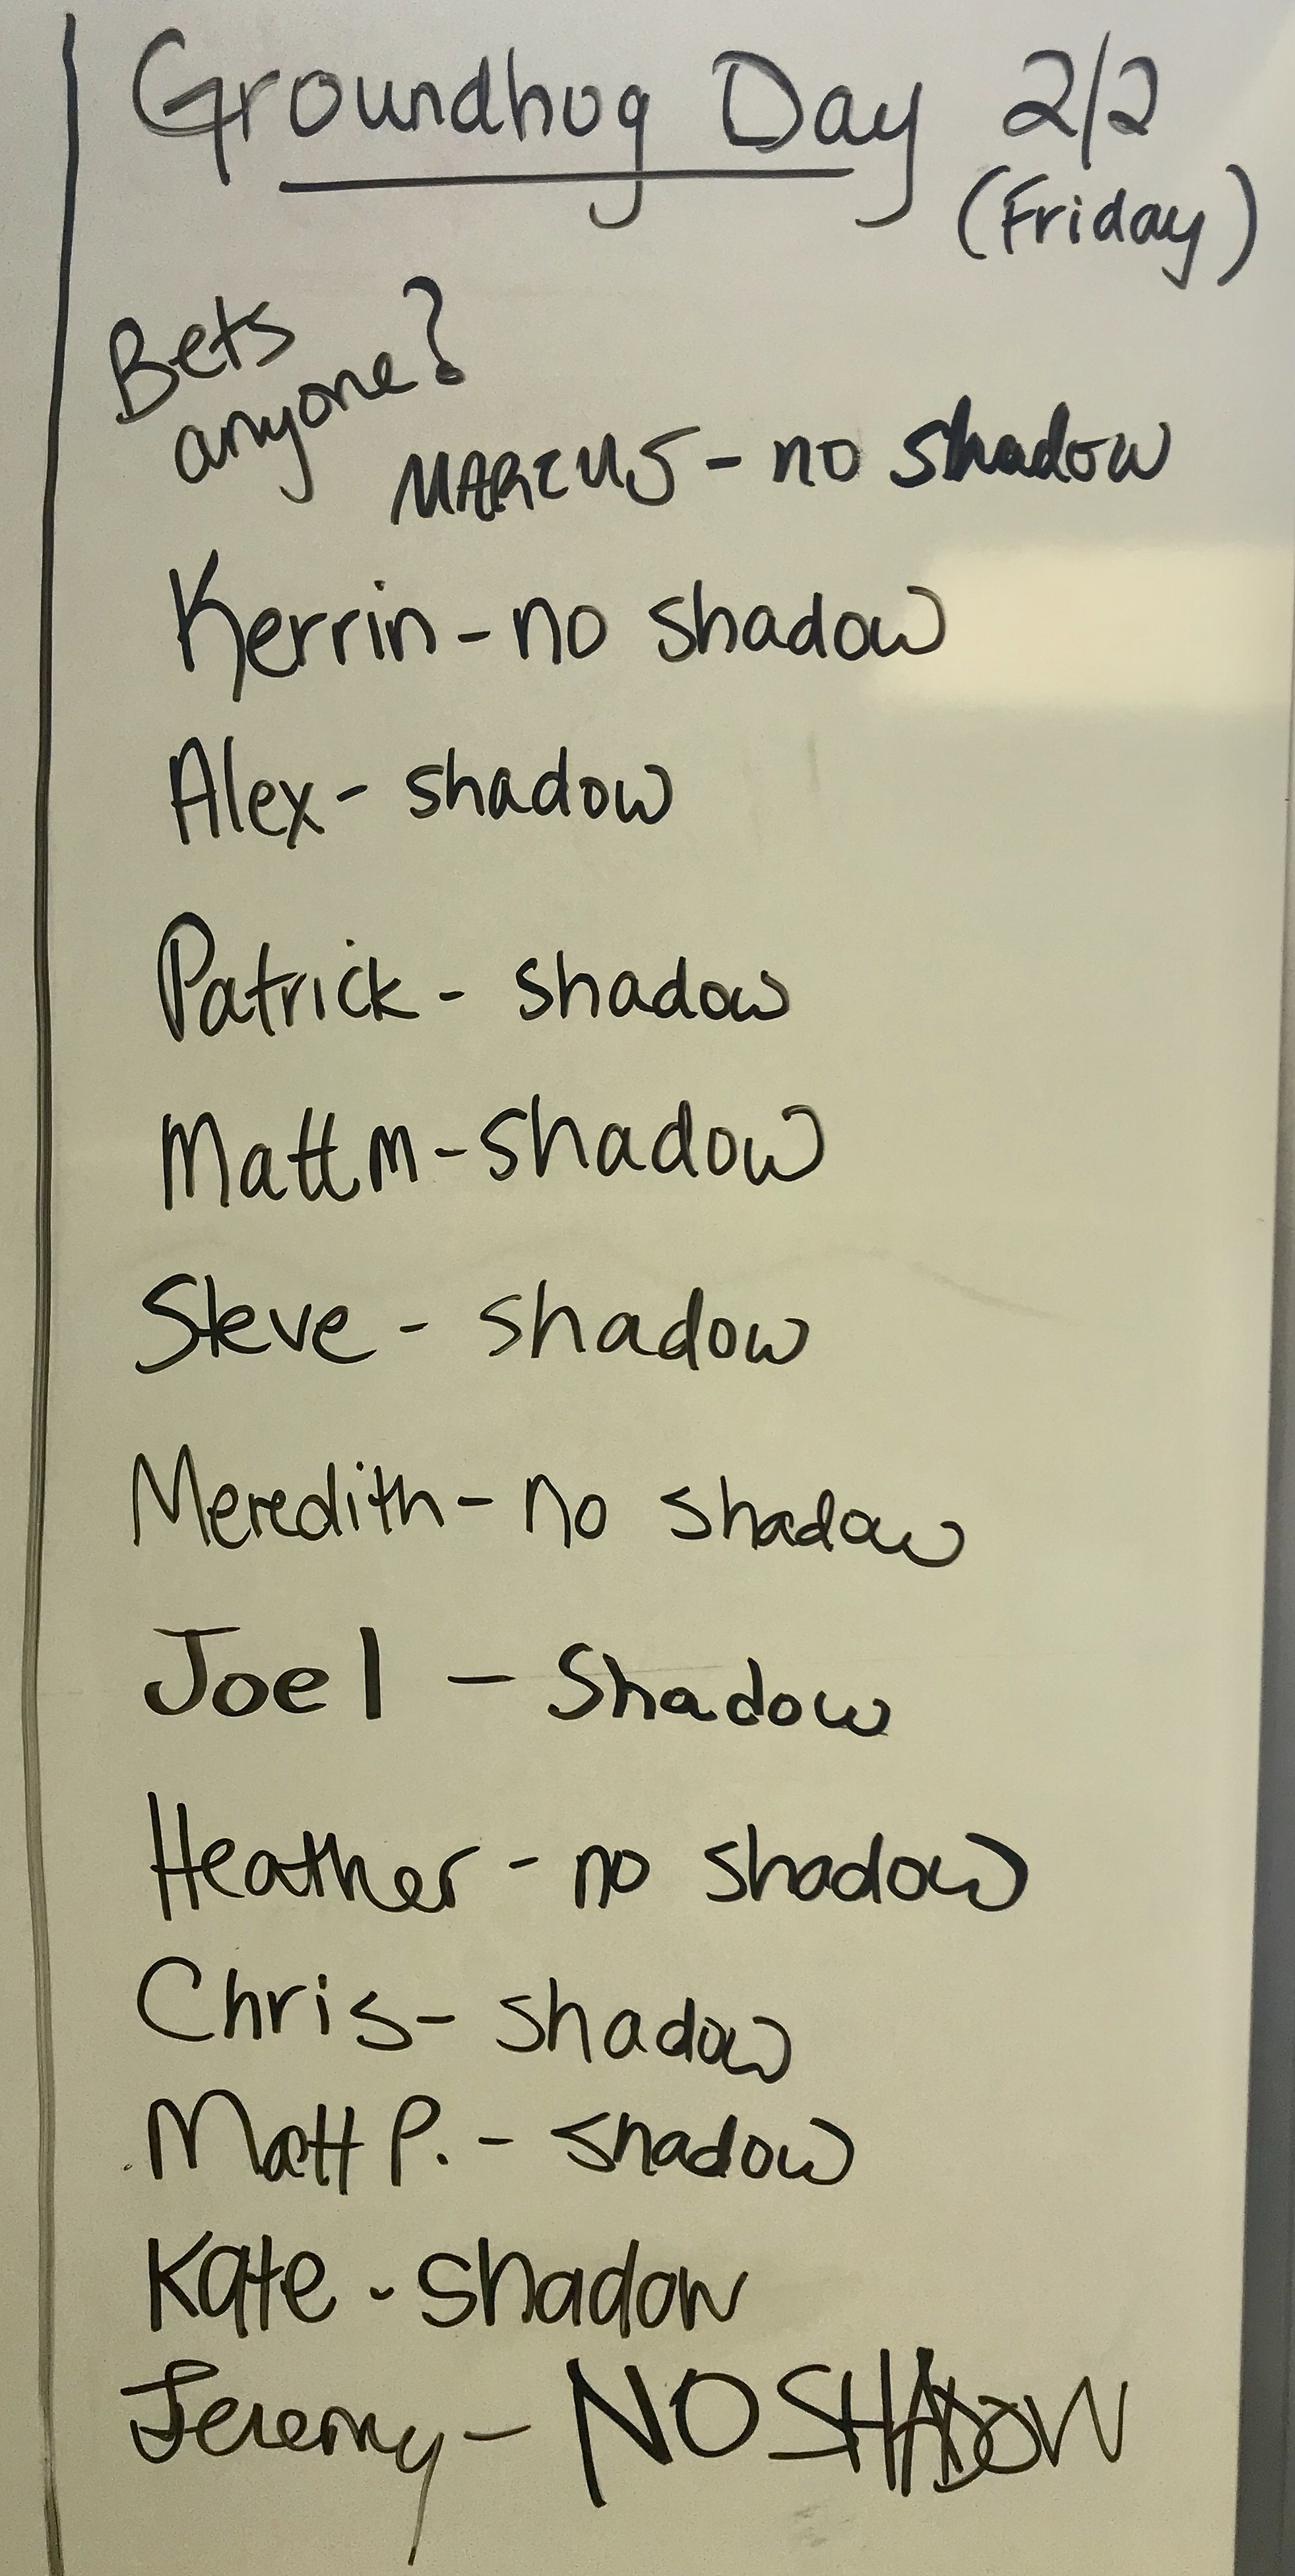 Groundhog Day 2/2
(Friday)
Bets
anyone?
MARCUS - no shadow
Kerrin - no shadow
Alex - shadow
Patrick - shadow
Matt M - shadow
Steve - shadow
Meredith - no shadow
Joel - Shadow
Heather - no shadow
Chris - shadow
Matt P. - shadow
Kate - shadow
Jeremy - NO SHADOW